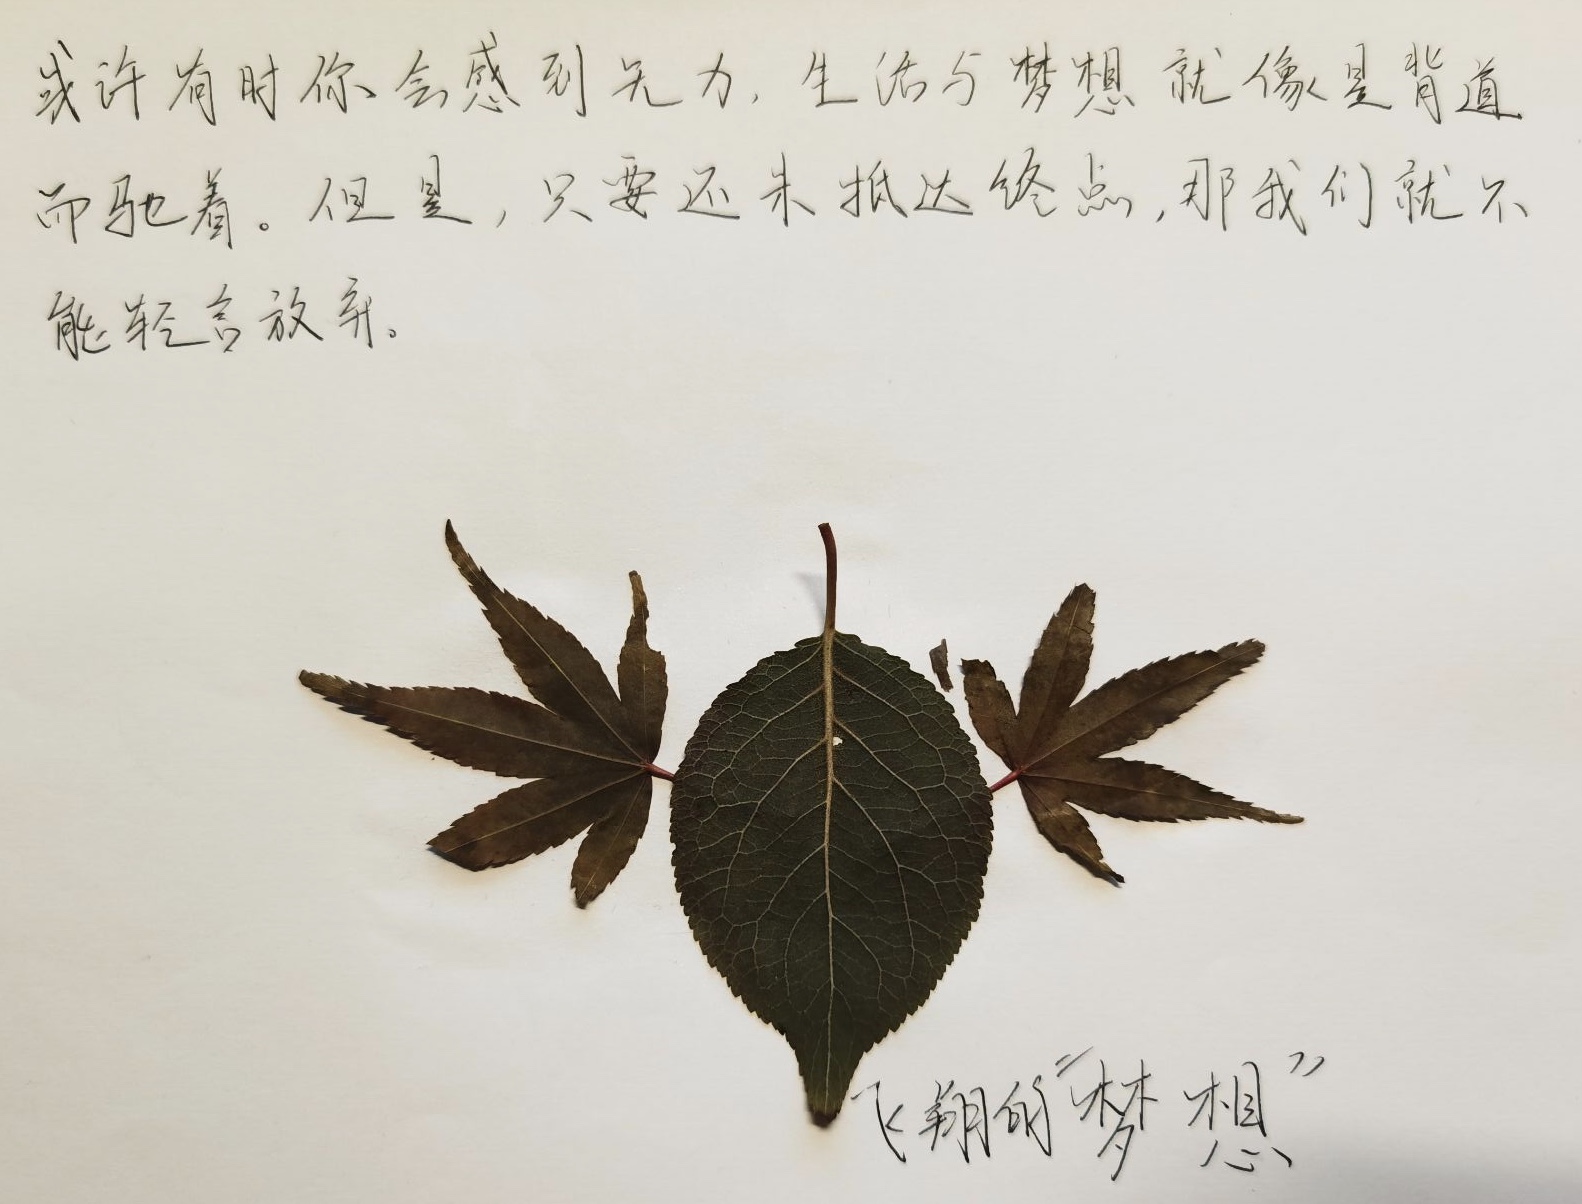 或许有时你会感到无力，生活与梦想就像是背道
而驰着。但是，只要还未抵达终点，那我们就不
能轻言放弃。
飞翔的“梦想”